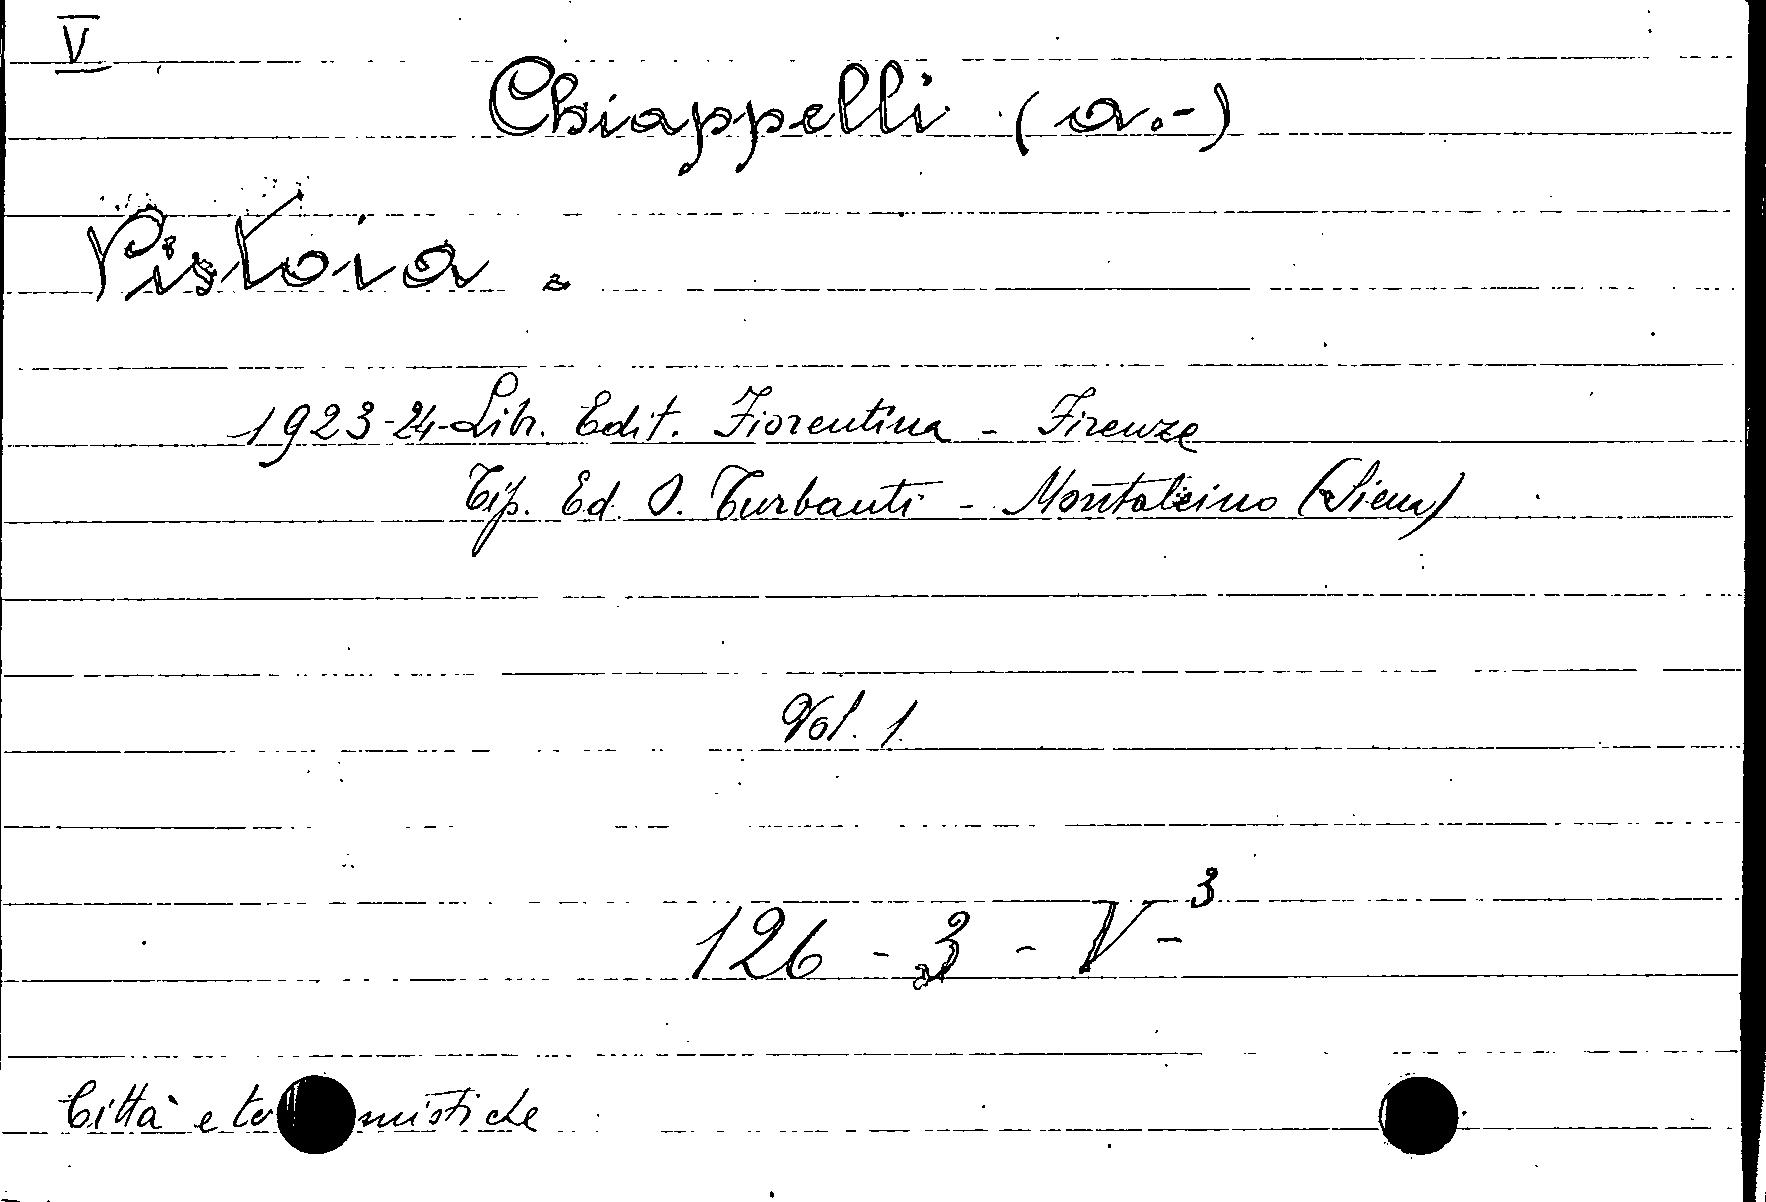 V
Chiappelli (a.-)
Pistoia.
1923-24-Libr. Edit. Fiorentina - Firenze
Tip. Ed. S. Turbanti - Montalcino (Siena)
Vol. 1.
126 - 3 - V - 3
Città e mistiche